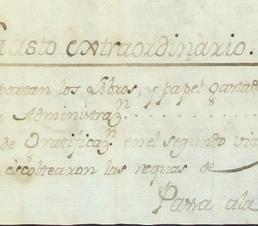 Gasto extraordinario.
portan los Libros, y papel gastad
Administraz.n . . . . . . . . .
de Gratificaz.n en el segundo via
escoltearon las requas de
Parra ala